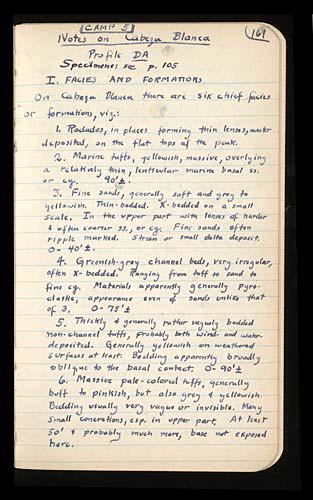 CAMP 5
161
Notes on Cabeza Blanca
Profile DA
Specimens: see p. 105
I. FACIES AND FORMATIONS
On Cabeza Blanca there are six chief facies
or formations, viz.:
1. Rodados, in places forming thin lenses, water
deposited, on the flat tops of the peak.
2. Marine tuffs, yellowish, massive, overlying
a relatively thin, lenticular marine basal ss.
or cg. 90'±
3. Fine sands, generally soft and grey to
yellowish. Thin-bedded. X-bedded on a small
scale. In the upper part with lenses of harder
& often coarser ss., or cg. Fine sands often
ripple marked. Stream or small delta deposit.
0-40'±.
4. Greenish-grey channel beds, very irregular,
often X-bedded. Ranging from tuff to sand to
fine cg. Materials apparently generally pyro-
clastic, appearance even of sands unlike that
of 3. 0-75'±
5. Thickly & generally rather vaguely bedded
non-channel tuffs, probably both wind- and water-
deposited. Generally yellowish on weathered
surfaces at least. Bedding apparently broadly
oblique to the basal contact. 0-90'±
6. Massive pale-colored tuffs, generally
buff to pinkish, but also grey & yellowish.
Bedding usually very vague or invisible. Many
small concretions, esp. in upper part. At least
50' & probably much more, base not exposed
here.